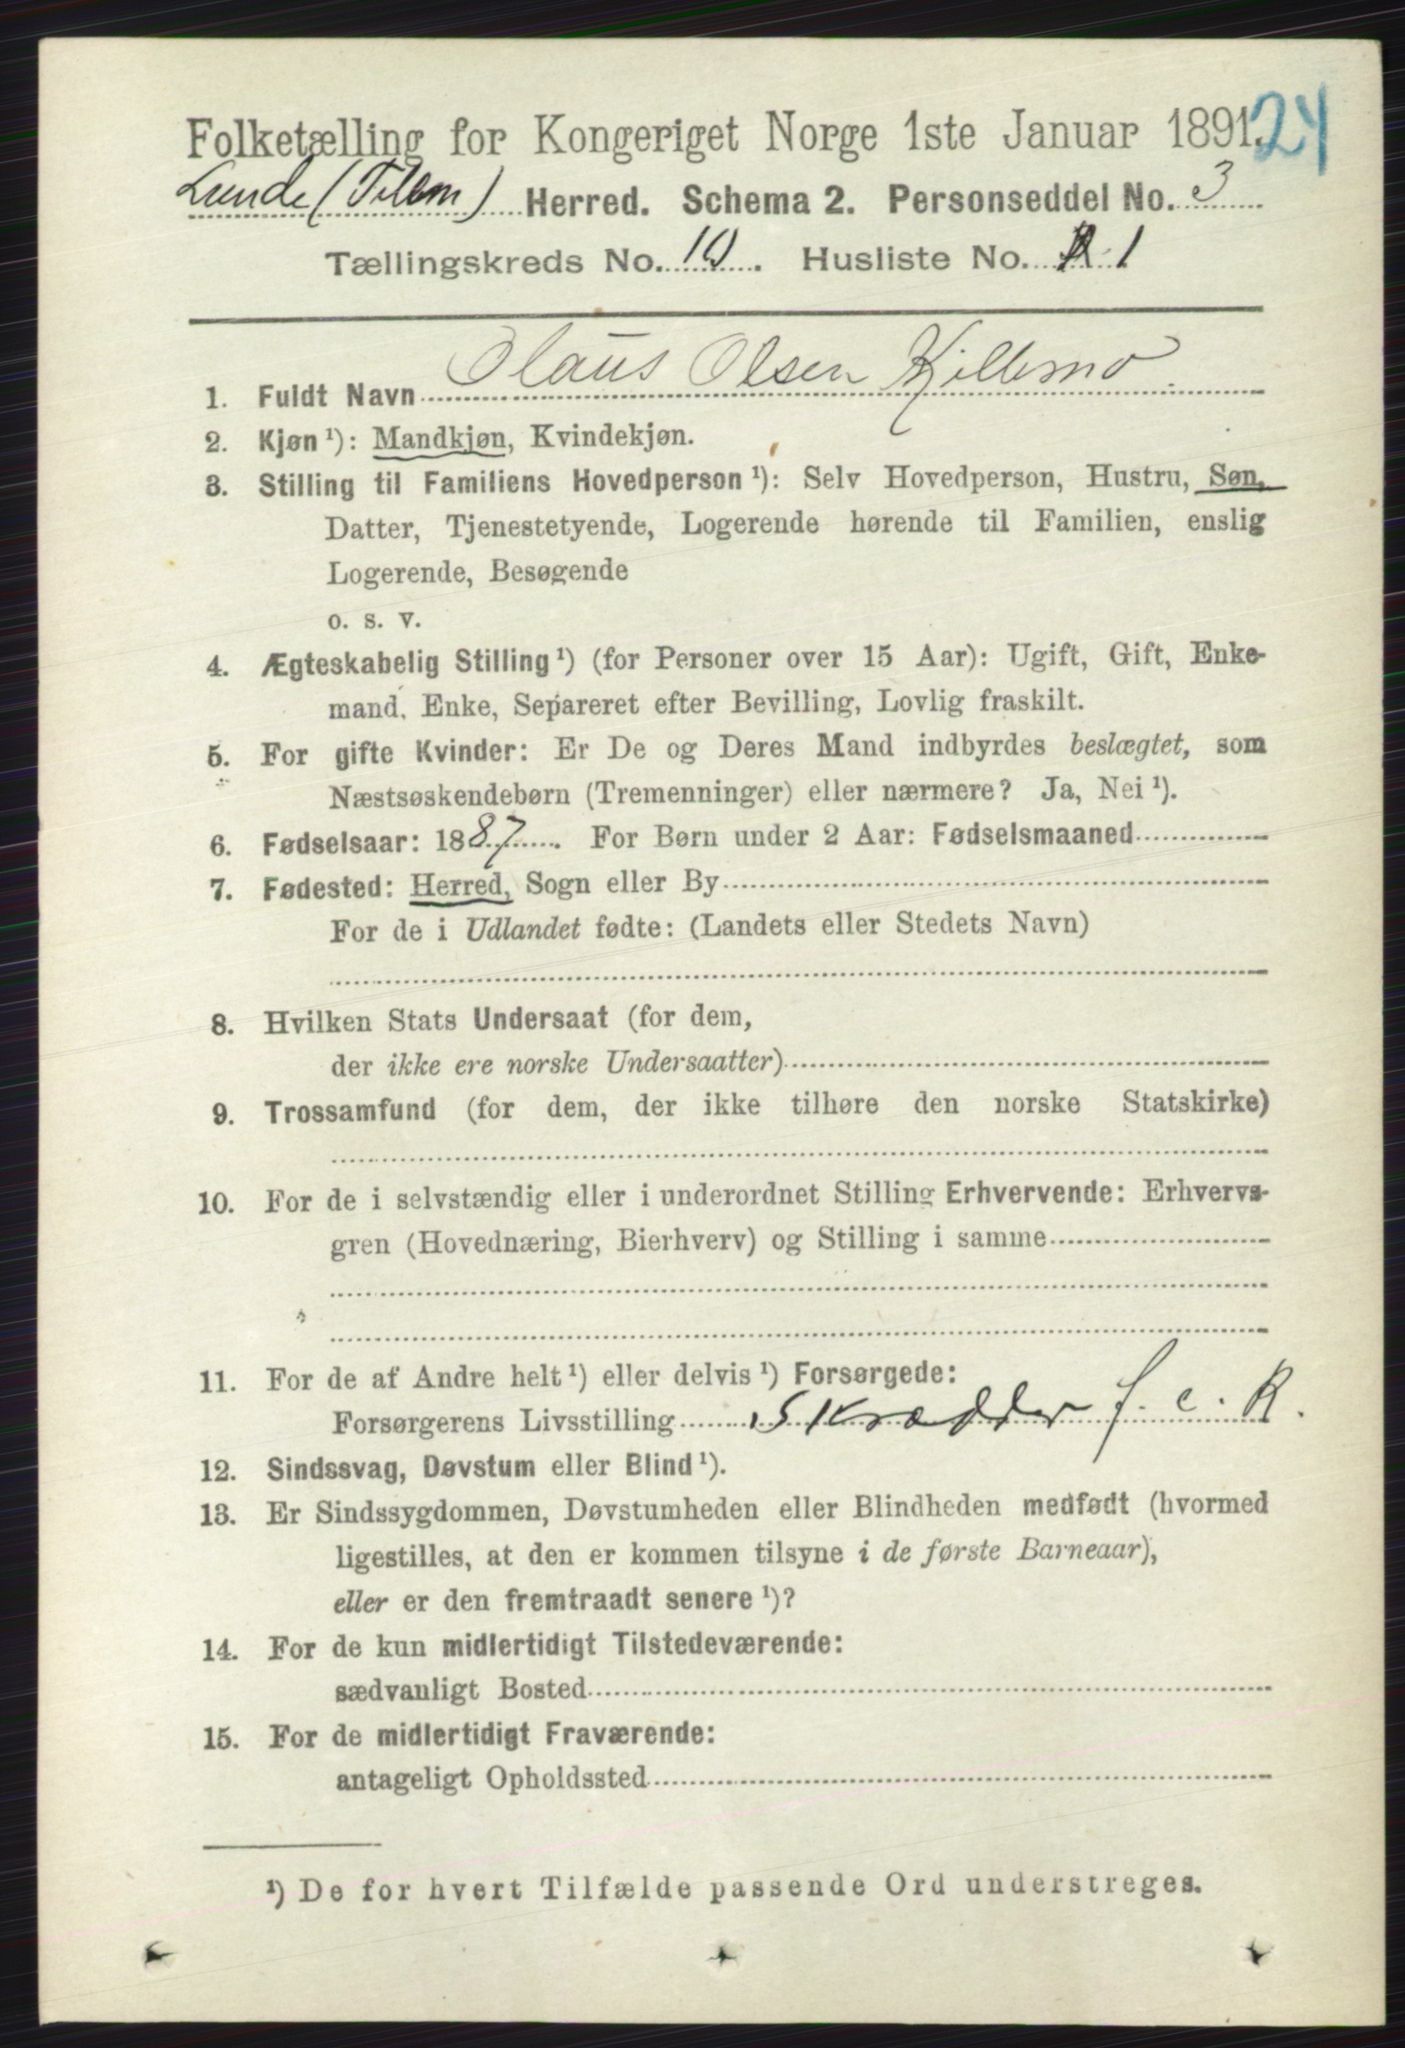 24
Folketælling for Kongeriget Norge 1ste Januar 1891.
Lunde (Telem) Herred. Schema 2. Personseddel No. 3
Tællingskreds No. 10. Husliste No. 1
1. Fuldt Navn Olaus Olsen Killemo.
2. Kjøn ¹): Mandkjøn, Kvindekjøn.
3. Stilling til Familiens Hovedperson ¹): Selv Hovedperson, Hustru, Søn,
Datter, Tjenestetyende, Logerende hørende til Familien, enslig
Logerende, Besøgende
o. s. v.
4. Ægteskabelig Stilling ¹) (for Personer over 15 Aar): Ugift, Gift, Enke-
mand, Enke, Separeret efter Bevilling, Lovlig fraskilt.
5. For gifte Kvinder: Er De og Deres Mand indbyrdes beslægtet, som
Næstsøskendebørn (Tremenninger) eller nærmere? Ja, Nei ¹).
6. Fødselsaar: 1887. For Børn under 2 Aar: Fødselsmaaned
7. Fødested: Herred, Sogn eller By
For de i Udlandet fødte: (Landets eller Stedets Navn)
8. Hvilken Stats Undersaat (for dem,
der ikke ere norske Undersaatter)
9. Trossamfund (for dem, der ikke tilhøre den norske Statskirke)
10. For de i selvstændig eller i underordnet Stilling Erhvervende: Erhvervs-
gren (Hovednæring, Bierhverv) og Stilling i samme
11. For de af Andre helt ¹) eller delvis ¹) Forsørgede:
Forsørgerens Livsstilling Skrædder f. e. R.
12. Sindssvag, Døvstum eller Blind ¹).
13. Er Sindssygdommen, Døvstumheden eller Blindheden medfødt (hvormed
ligestilles, at den er kommen tilsyne i de første Barneaar),
eller er den fremtraadt senere ¹)?
14. For de kun midlertidigt Tilstedeværende:
sædvanligt Bosted
15. For de midlertidigt Fraværende:
antageligt Opholdssted
¹) De for hvert Tilfælde passende Ord understreges.